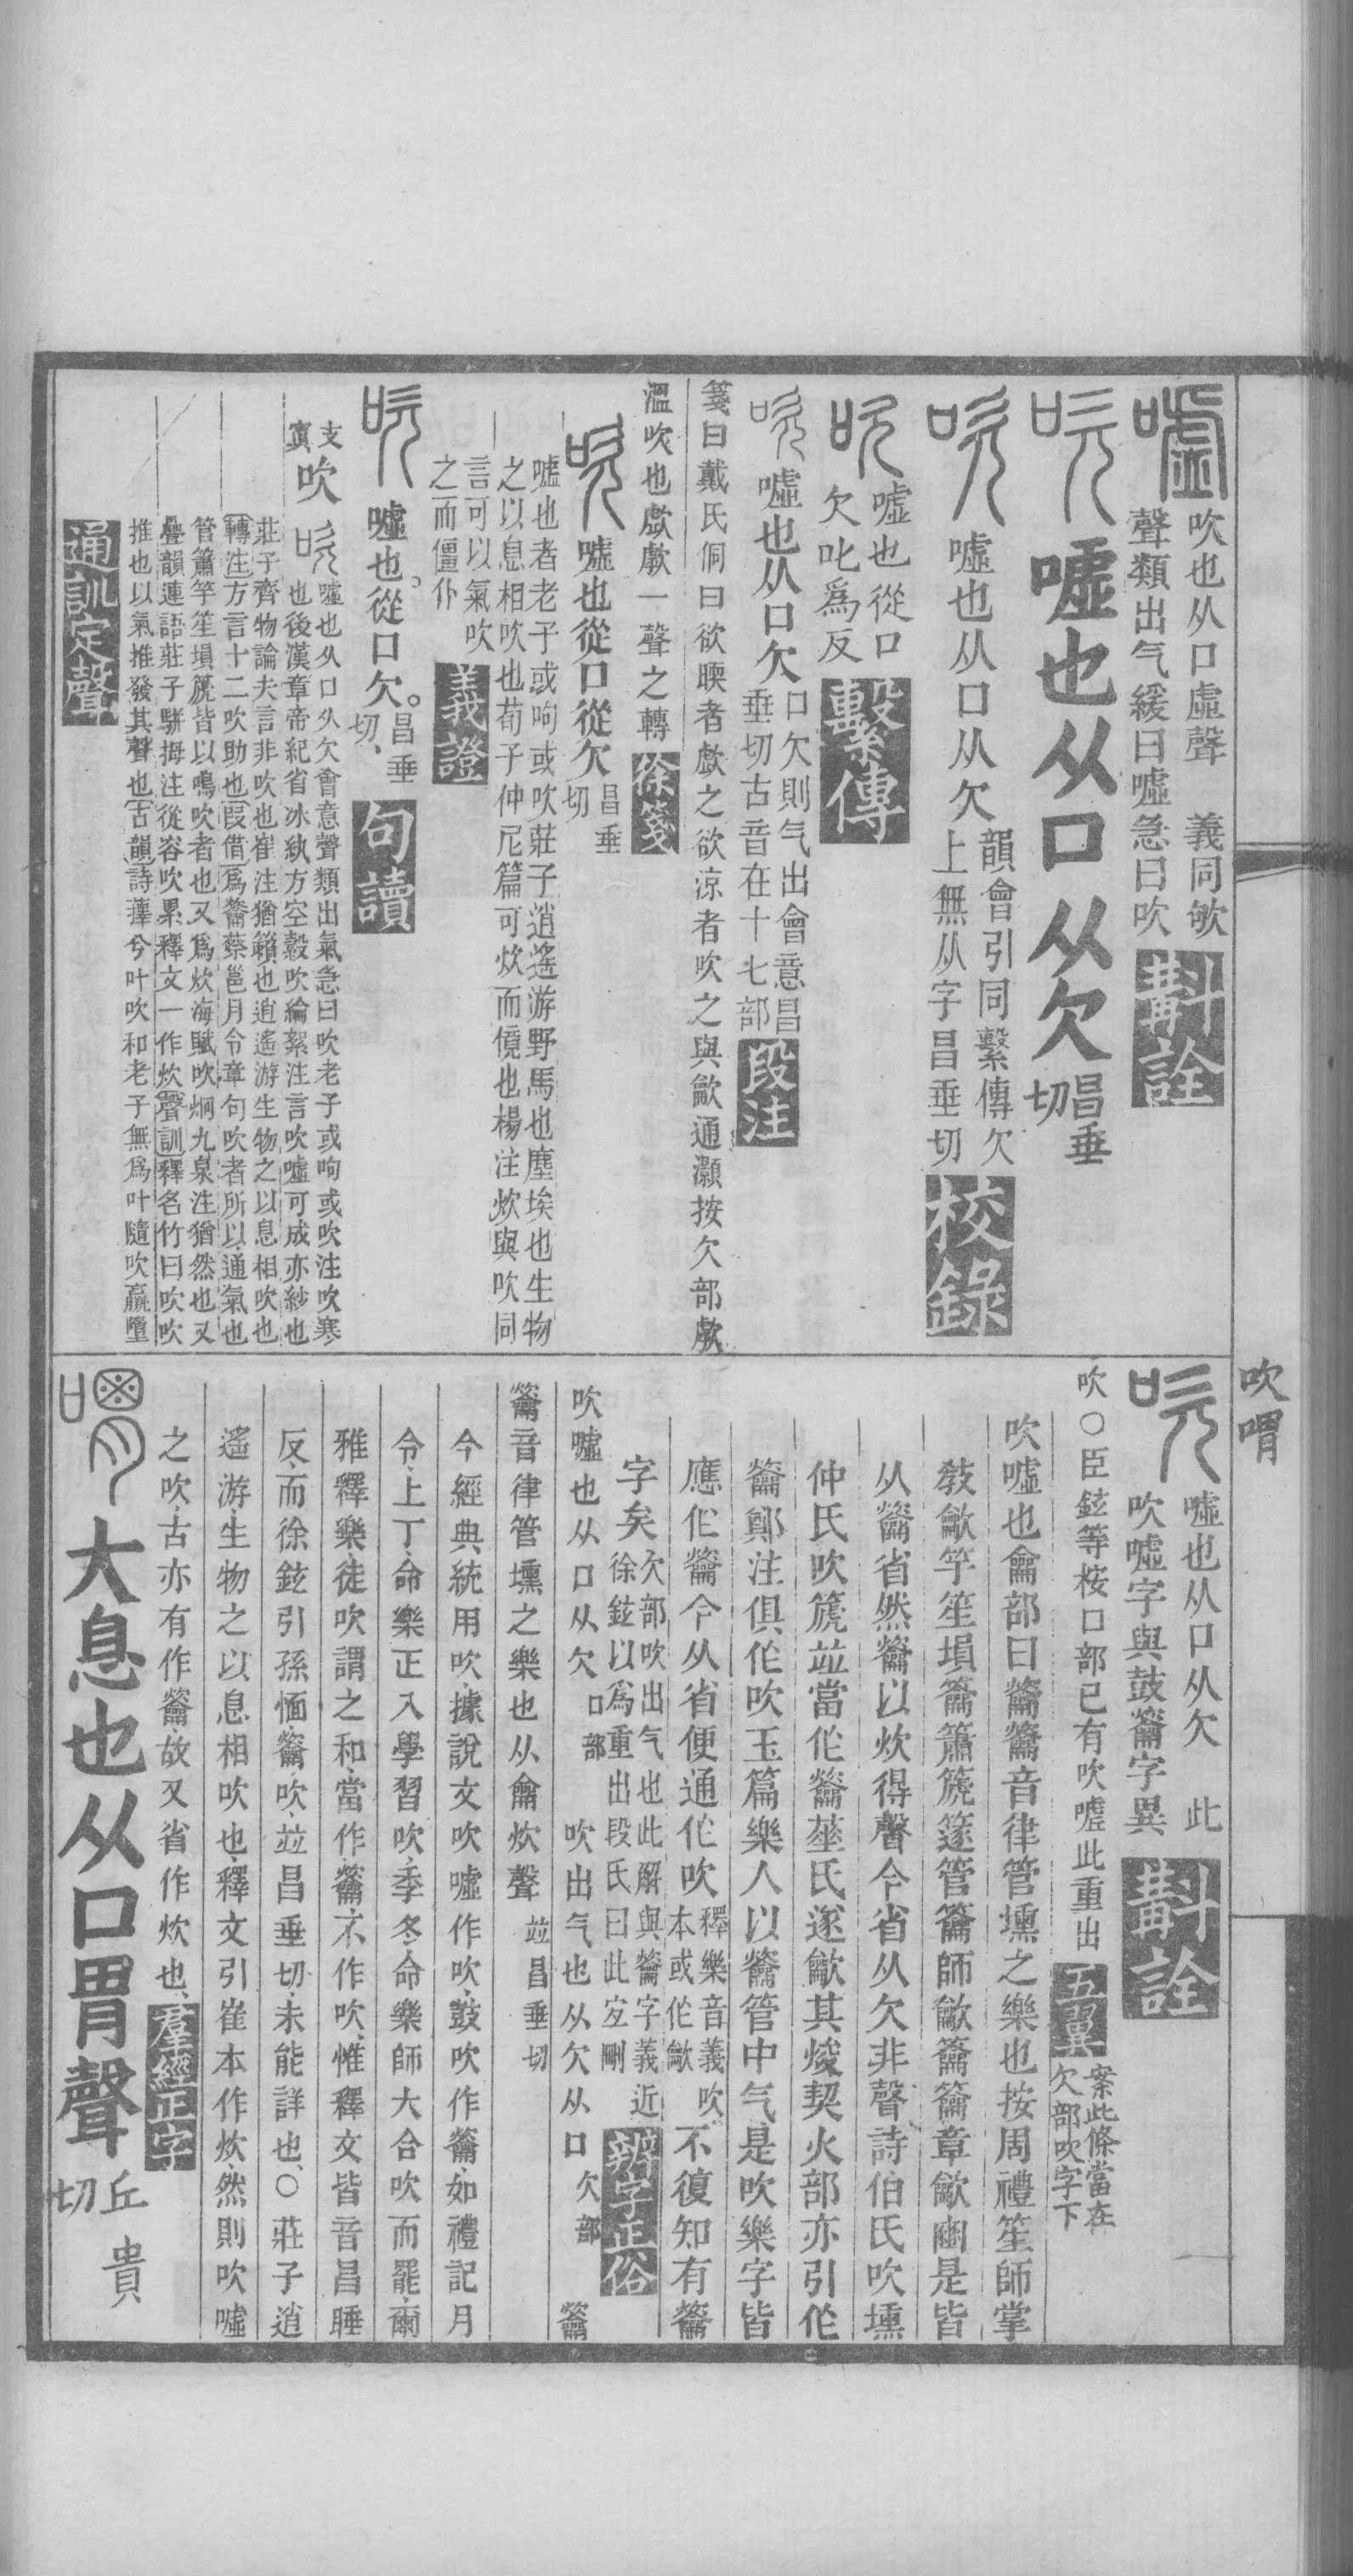 吹也从口虛聲　義同㰦
聲類出气緩曰噓急曰吹
斠詮
噓也从口从欠昌垂切
噓也从口从欠
韻會引同繫傳欠
上無从字昌垂切
校錄
噓也從口
欠叱爲反
繫傳
噓也从口欠
口欠則气出會意昌
垂切古音在十七部
段注
箋曰戴氏侗曰欲暖者歔之欲涼者吹之與龡通灝按欠部歔
溫吹也歔歑一聲之轉
徐箋
噓也從口從欠昌垂切
噓也者老子或呴或吹莊子逍遙游野馬也塵埃也生物
之以息相吹也荀子仲尼篇可炊而傹也楊注炊與吹同
言可以氣吹
之而僵仆
義證
噓也。從口欠。昌垂切、
句讀
支
寘
吹
噓也从口从欠會意聲類出氣急曰吹老子或呴或吹注吹寒
也後漢章帝紀省冰紈方空縠吹綸絮注言吹噓可成亦紗也
莊子齊物論夫言非吹也崔注猶籟也逍遙游生物之以息相吹也
轉注方言十二吹助也叚借爲龡蔡邕月令章句吹者所以通氣也
管簫竽笙塤篪皆以鳴吹者也又爲炊海賦吹炯九泉注猶然也又
疊韻連語莊子駢拇注從容吹累釋文一作炊聲訓釋名竹曰吹吹
推也以氣推發其聲也古韻詩蘀兮叶吹和老子無爲叶隨吹羸墮
通訓定聲
吹喟
噓也从口从欠　此
吹噓字與鼓龡字異
斠詮
吹○臣鉉等桉口部已有吹噓此重出
五翼
案此條當在
欠部吹字下
吹噓也龠部曰龡龡音律管壎之樂也按周禮笙師掌
敎龡竽笙塤籥簫篪篴管籥師龡籥籥章龡豳是皆
从龡省然龡以炊得聲今省从欠非聲詩伯氏吹壎
仲氏吹篪竝當作龡菙氏遂龡其焌契火部亦引作
龡鄭注俱作吹玉篇樂人以龡管中气是吹樂字皆
應作龡今从省便通作吹
釋樂音義吹
本或作龡
不復知有龡
字矣
欠部吹出气也此解與龡字義近
徐鉉以爲重出段氏曰此宐刪
辨字正俗
吹噓也从口从欠口部　吹出气也从欠从口欠部　龡
龡音律管壎之樂也从龠炊聲竝昌垂切
今經典、統用吹、據說文吹噓作吹、鼓吹作龡、如禮記月
令、上丁、命樂正入學習吹、季冬、命樂師大合吹而罷、爾
雅釋樂、徒吹謂之和、當作龡、不作吹、惟釋文皆音昌睡
反、而徐鉉引孫愐、龡、吹、竝昌垂切、未能詳也、○莊子逍
遙游、生物之以息相吹也、釋文引崔本作炊、然則吹噓
之吹、古亦有作龡、故又省作炊也、
羣經正字
大息也从口胃聲丘貴切